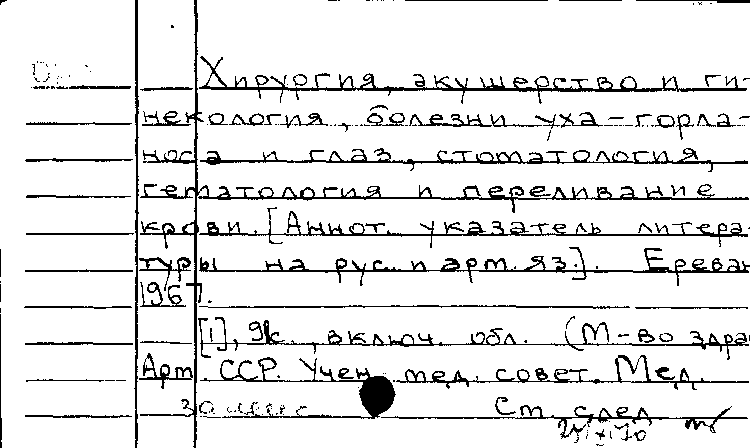 Хирургия, акушерство и ги-
некология, болезни уха-горла-
носа и глаз, стоматология,
гематология и переливание
крови. [Аннот. указатель литера-
туры на рус. и арм. яз.]. Ереван
1967.
[1], 91с., включ. обл. (М-во здрав
Арм. ССР. Учен. мед. совет. Мед.
См. след